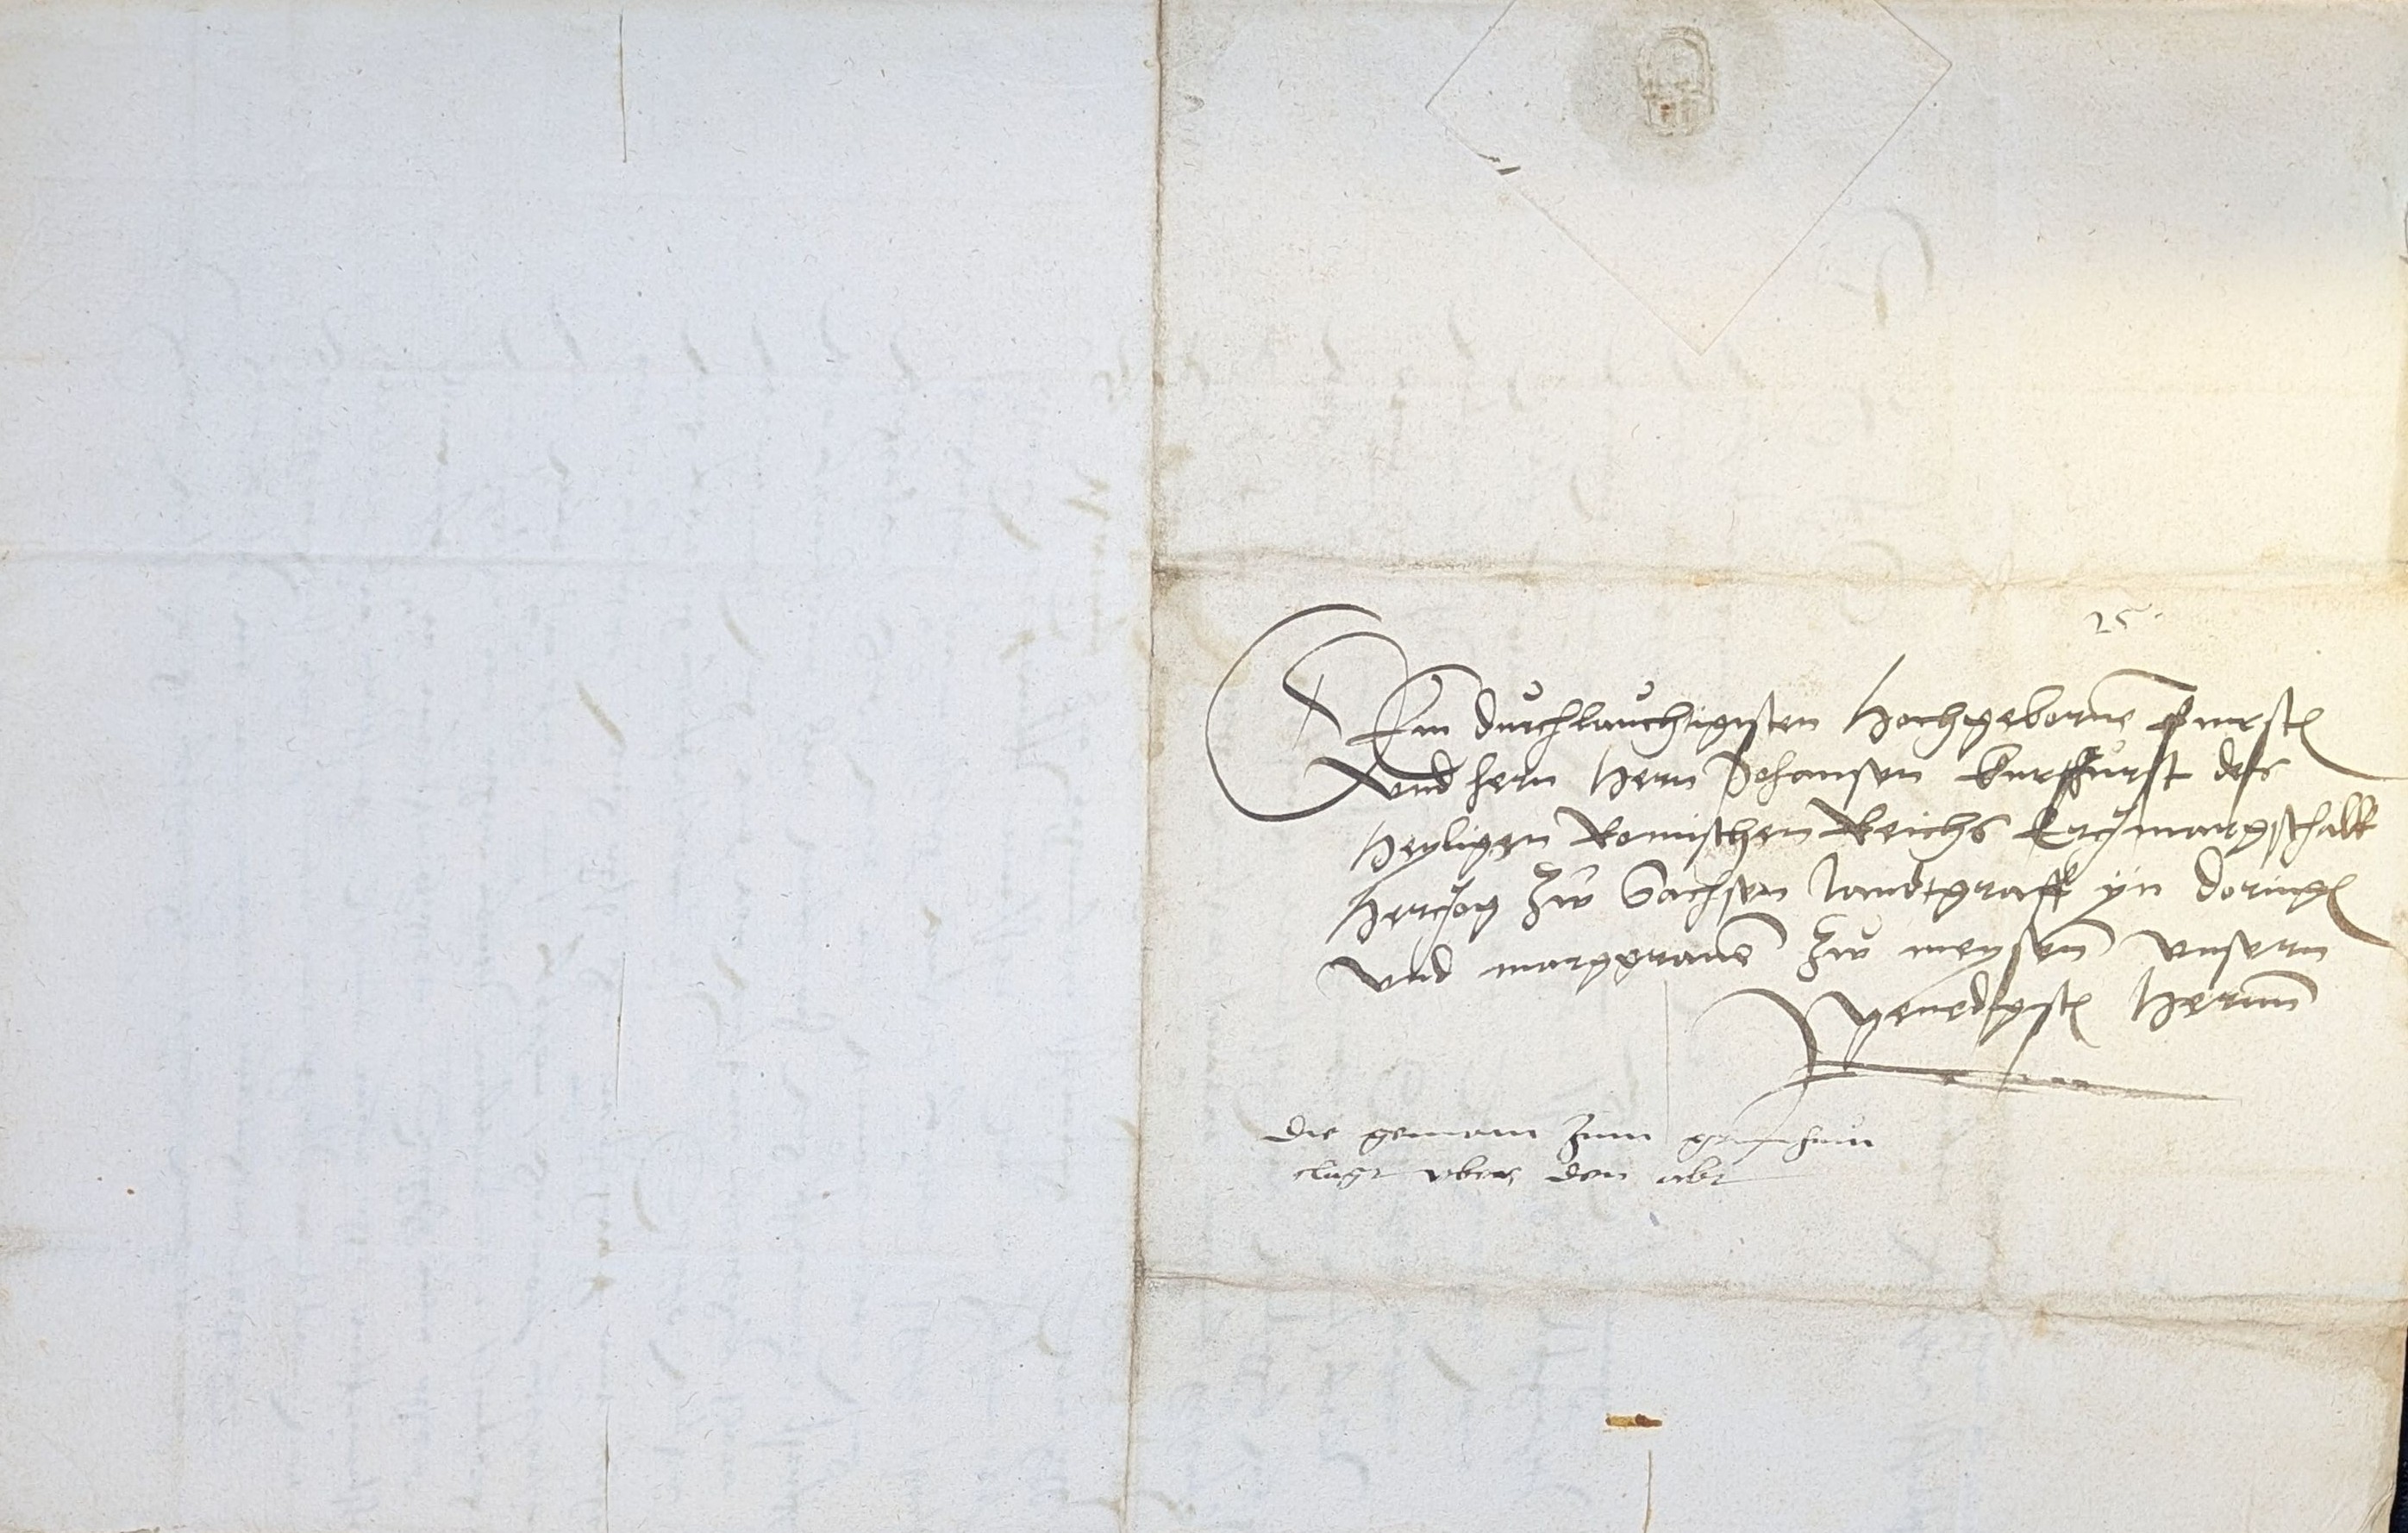 25.
Dem durchlauchtigisten Hochgeborne Furste
vnd hern Hern Johansen Kurffurst des
Heyligen Romischen Reichs Erczmargschalk
Herczog Zw Sachsen landtgraff yn doringe
vnd marggraue Zw meyssen vnserm
Genedigste Hernn
die gemain zum
clagt vber den abt